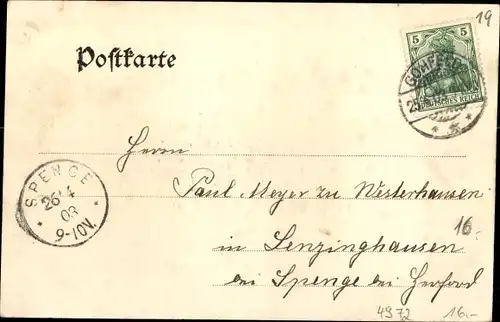 19
Postkarte
5
GOHFELD
DEUTSCHES REICH
Herrn
SPENGE
26/4
03
9-10V.
Paul Meyer zu Westerhausen
16.
in Lenzinghausen
bei Spenge bei Herford
4972 16.-